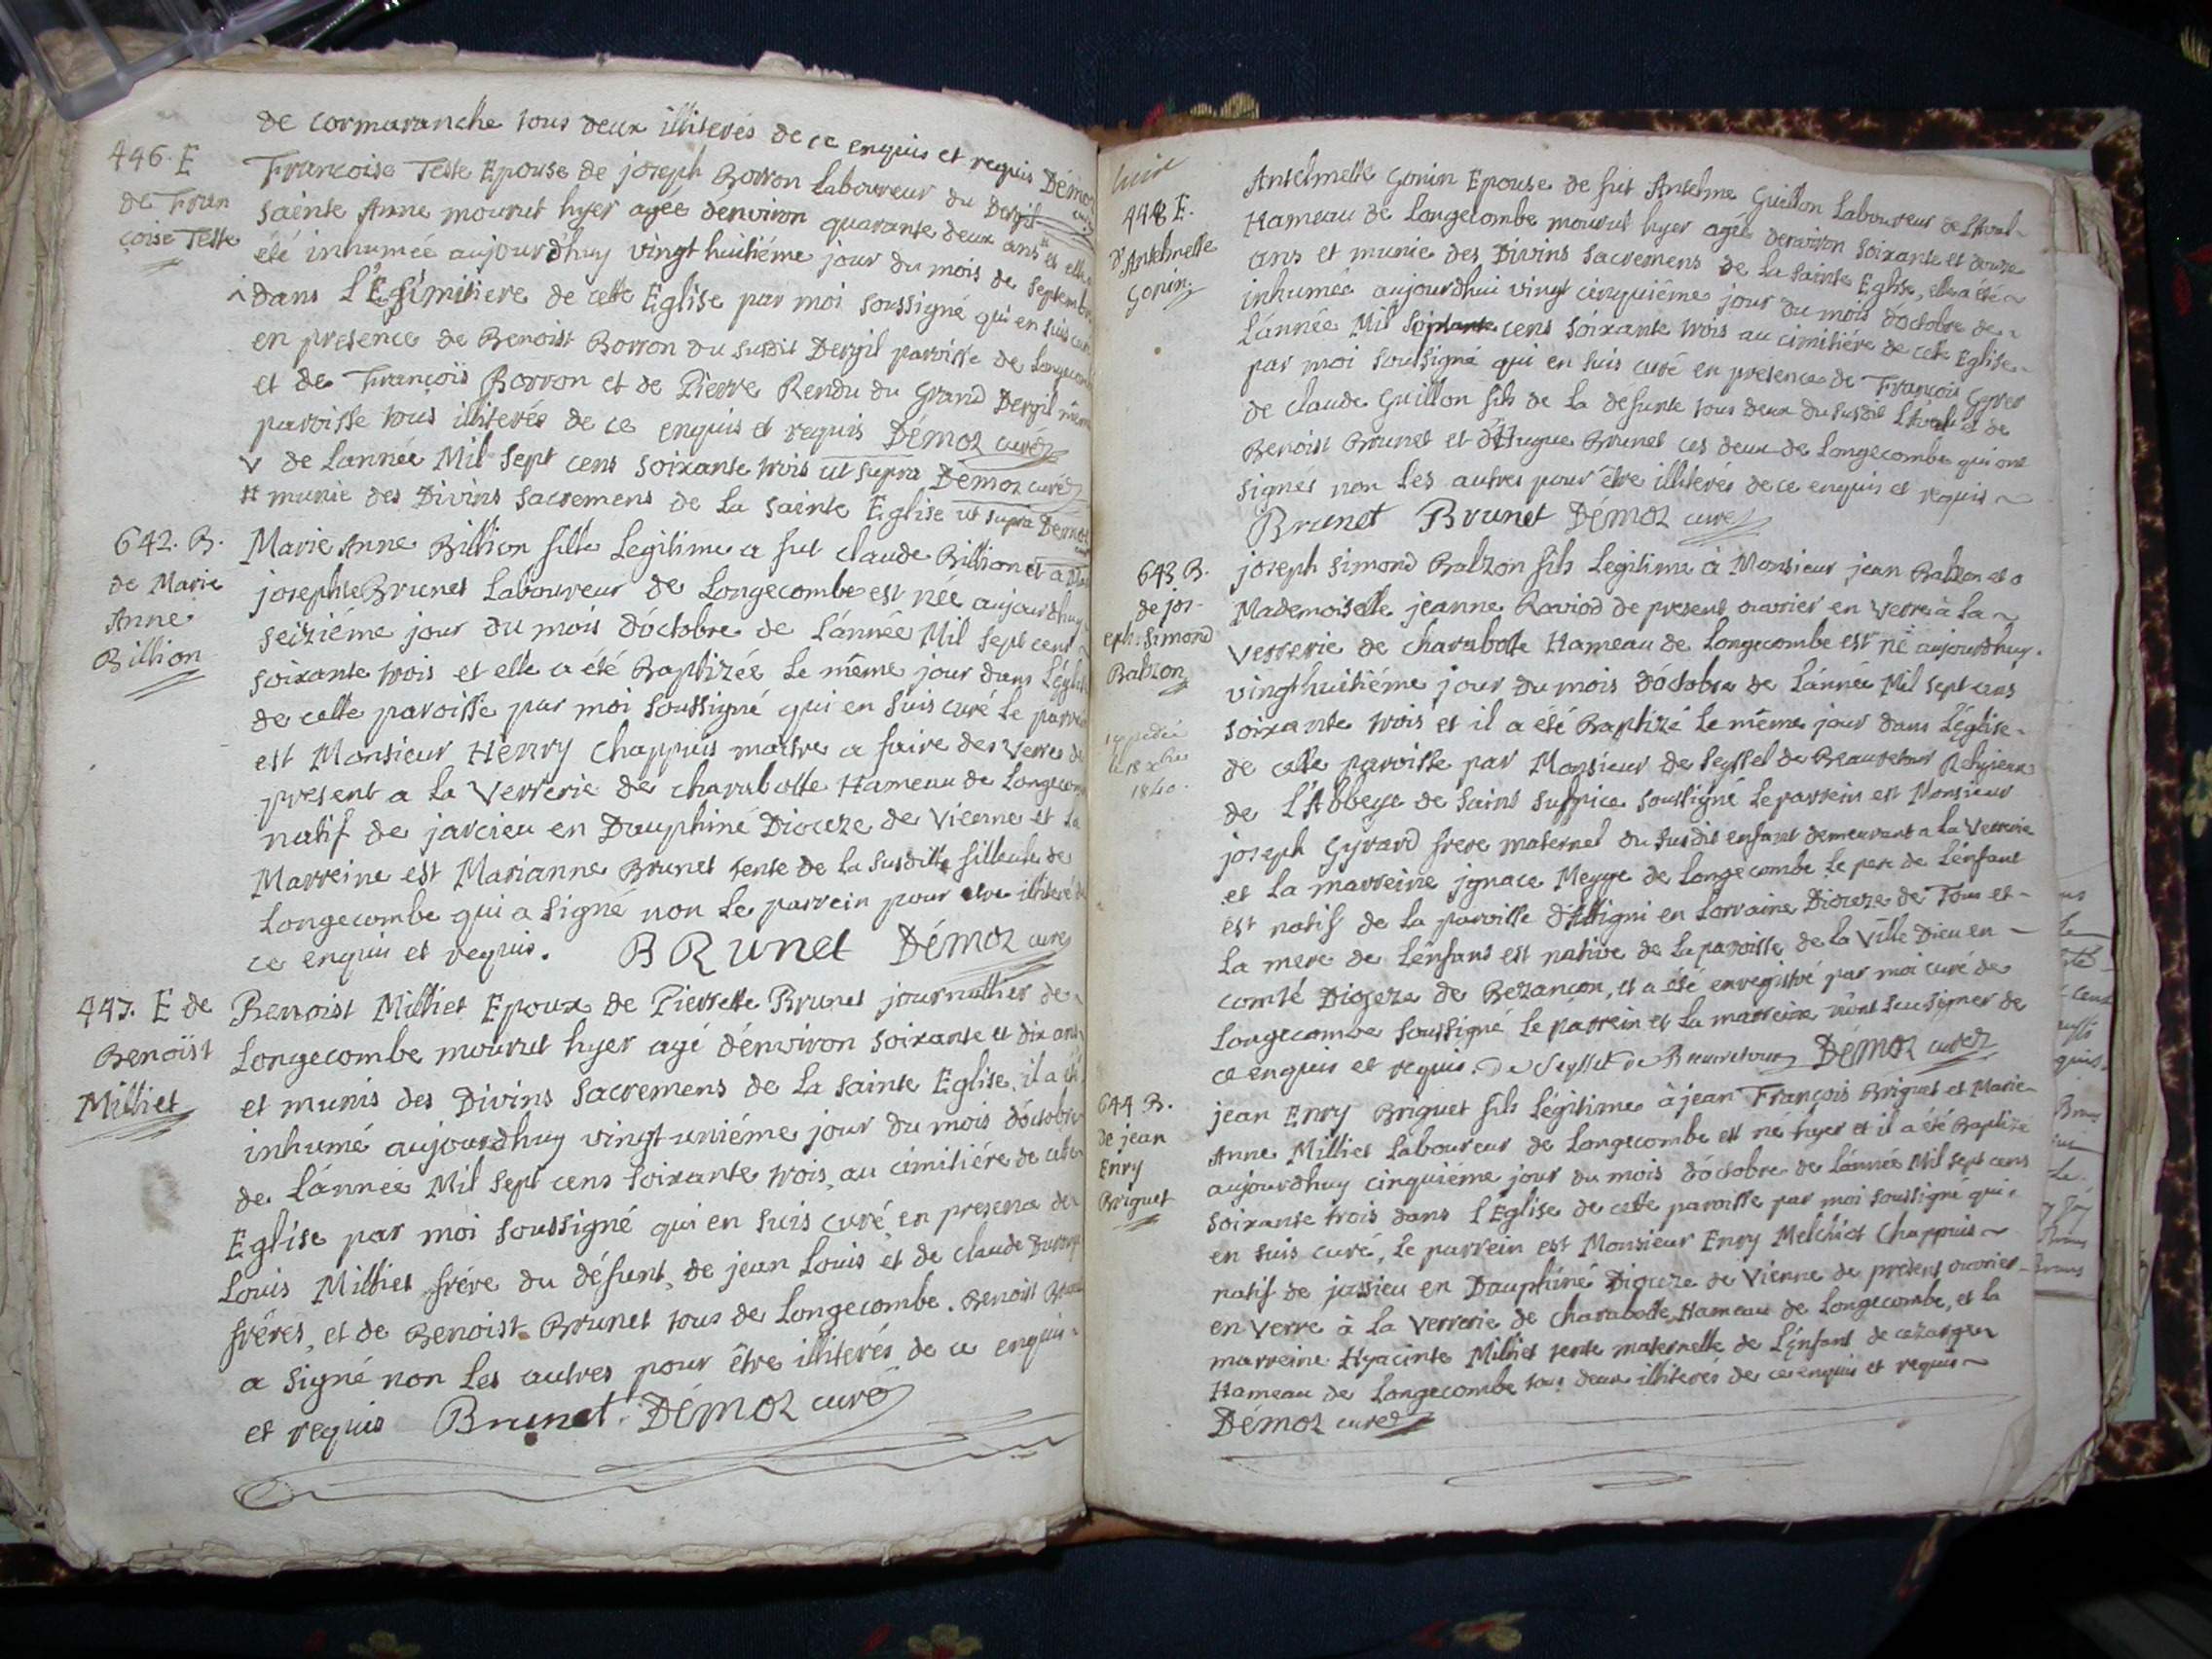 de cormaranche tous deux illiterés de ce enquis et requis Démoz
446. E
de Fran
çoise Teste
Francoise Teste Epouse de joseph Borron Laboureur du Dergil
sainte Anne mourut hyer agée d'environ quarante deux ans # et elle a
été inhumée aujourdhuy vingt huitiéme jour du mois de septembre
^ dans l'E Simitiere de cette Eglise par moi soussigné qui en suis curé
en presence de Benoist Borron du susdit Dergil paroisse de Longecombe
et de François Borron et de Pierre Rendu du Grand Dergil même
paroisse tous illiterés de ce enquis et requis Démoz curé
v de Lannée Mil sept cens soixante trois ut supra Démoz curé
# munie des Divins sacremens de La sainte Eglise ut supra Démoz
642. B.
de Marie
Anne
Billion
Marie Anne Billion fille Legitime a fut claude Billion et a
josephte Brunet Laboureur de Longecombe est née aujourdhuy
seiziéme jour du mois d'octobre de L'année Mil sept cent
soixante trois et elle a été Baptizée Le même jour dans L'église
de cette paroisse par moi soussigné qui en suis curé Le parrein
est Monsieur Henry Chappuis maitre a faire des verres de
present a La Verrerie de charabotte Hameau de Longecombe
natif de jarcieu en Dauphiné Dioceze de Vienne et La
Marreine est Marianne Brunet tente de La susditte filleule de
Longecombe qui a signé non Le parrein pour etre illiteré de
ce enquis et requis. BRunet Démoz curé
447. E de
Benoïst
Milliet
Benoist Milliet Epoux de Pierrette Brunet journallier de
Longecombe mourut hyer agé d'environ soixante et dix ans
et munis des Divins sacremens de La sainte Eglise, il a été
inhumé aujourdhuy vingt-uniéme jour du mois d'octobre
de L'année Mil sept cens soixante trois, au cimitiére de cette
Eglise par moi soussigné qui en suis curé, en presence de
Louis Milliet frére du défunt, de jean Louis et de claude
fréres, et de Benoist Brunet tous de Longecombe. Benoist Brunet
a signé non Les autres pour être illiterés de ce enquis
et requis Brunet. Démoz curé
448 E.
d'Antelmette
Gonin
Antelmette Gonin Epouse de fut Antelme Guillon Laboureur de
Hameau de Longecombe mourut hyer agée d'environ soixante et douze
ans et munie des Divins sacremens de La sainte Eglise, elle a été
inhumée aujourdhui vingt cinquiéme jour du mois d'octobre de
L'année Mil cens soixante trois au cimitiére de cette Eglise
par moi soussigné qui en suis curé en presence de François
de claude Guillon fils de La défunte tous deux du susdit et de
Benoist Brunet et d'Hugue Brunet ces deux de Longecombe qui ont
signés non Les autres pour être illiterés de ce enquis et requis
Brunet Brunet Démoz curé
643 B.
de jos-
eph-simond
Balzon
joseph simond Balzon fils Legitime à Monsieur jean Balzon et a
Mademoiselle jeanne Raviod de present ouvrier en verre à La
Verrerie de charabotte Hameau de Longecombe est né aujourdhuy
vingthuitiéme jour du mois d'octobre de L'année Mil sept cens
soixante trois et il a été Baptizé Le même jour dans L'église
de cette paroisse par Monsieur de Seyssel de Beauretour Religieux
de L'Abbeye de saint sulpice soussigné Le parrein est Monsieur
joseph Gyrard frere maternel du susdit enfant demeurant a La Verrerie
et La marreine jgnace Meyge de Longecombe Le pere de L'enfant
est natif de La paroisse d'Attigni en Lorraine Dioceze de Toux et
La mere de L'enfans est native de La paroisse de La Ville Dieu en
comté Dioceze de Bezançon, et a été enregistré par moi curé de
Longecombe soussigné Le parrein et La marreine n'ont sceu signer de
ce enquis et requis. De Seyssel de Beauretour Démoz curé
644 B.
de jean
Enry
Briguet
jean Enry Briguet fils Légitime à jean François Briguet et Marie
Anne Milliet Laboureur de Longecombe est né hyer et il a été Baptizé
aujourdhuy cinquiéme jour du mois d'octobre de L'année Mil sept cens
soixante trois dans L'Eglise de cette paroisse par moi soussigné qui
en suis curé, Le parrein est Monsieur Enry Melchiot Chappuis
natif de jassieu en Dauphiné Dioceze de Vienne de présent ouvrier
en verre à La Verrerie de charabotte Hameau de Longecombe, et La
marreine Hyacinte Milliet tente maternelle de L'enfant de cezargen
Hameau de Longecombe tous deux illiterés de ce enquis et requis
Démoz curé